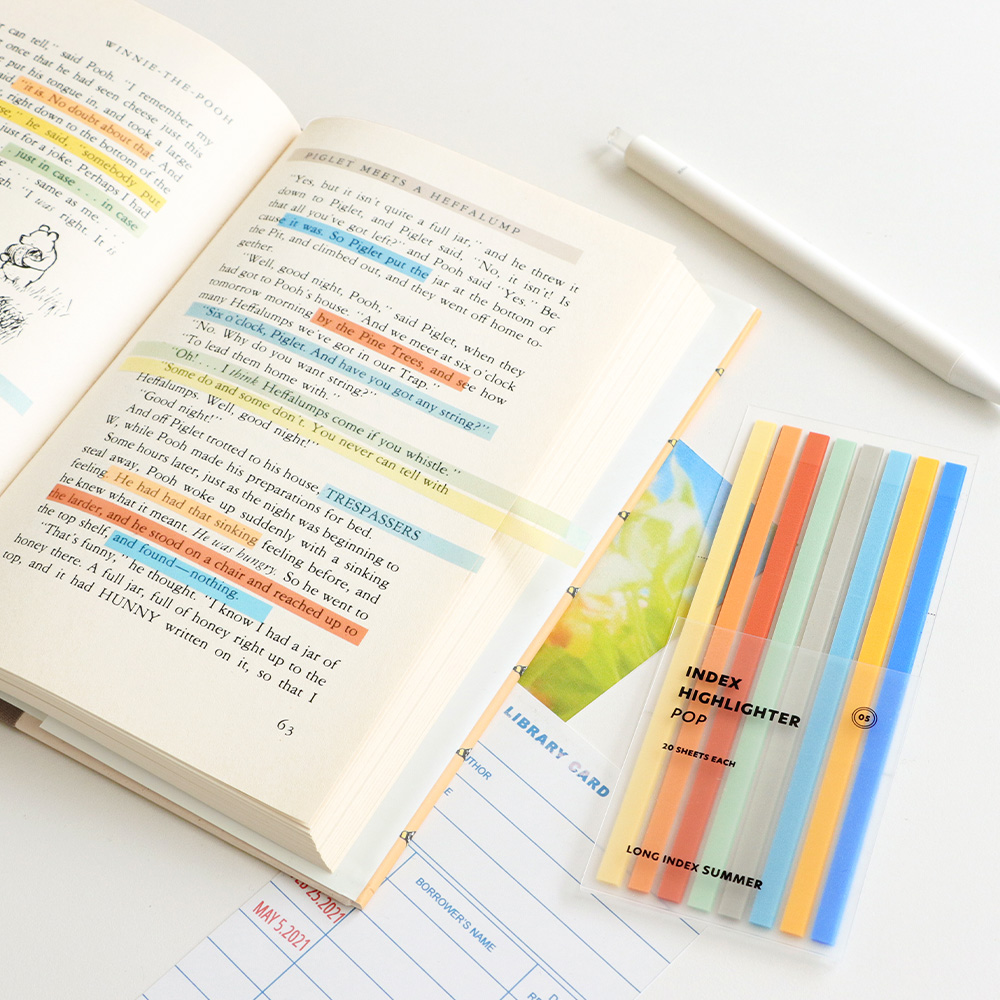 WINNIE-THE-POOH
can tell," said Pooh. "I remember my
once that he had seen cheese just this
put his tongue in, and took a large
said, "it is. No doubt about that. And
right down to the bottom of the
he said, "somebody put
just for a joke. Perhaps I had
just in case . . . in case
. . . same as me. . . .
"I was right. It is
PIGLET MEETS A HEFFALUMP
"Yes, but it isn't quite a full jar," and he threw it
down to Piglet, and Piglet said, "No, it isn't! Is
that all you've got left?" and Pooh said "Yes." Be-
cause it was. So Piglet put the jar at the bottom of
the Pit, and climbed out, and they went off home to-
gether.
"Well, good night, Pooh," said Piglet, when they
had got to Pooh's house. "And we meet at six o'clock
tomorrow morning by the Pine Trees, and see how
many Heffalumps we've got in our Trap."
"Six o'clock, Piglet. And have you got any string?"
"No. Why do you want string?"
"To lead them home with."
"Oh! . . . I think Heffalumps come if you whistle."
"Some do and some don't. You never can tell with
Heffalumps. Well, good night!"
"Good night!"
And off Piglet trotted to his house TRESPASSERS
W, while Pooh made his preparations for bed.
Some hours later, just as the night was beginning to
steal away, Pooh woke up suddenly with a sinking
feeling. He had had that sinking feeling before, and
he knew what it meant. He was hungry. So he went to
the larder, and he stood on a chair and reached up to
the top shelf, and found—nothing.
"That's funny," he thought. "I know I had a jar of
honey there. A full jar, full of honey right up to the
top, and it had HUNNY written on it, so that I
63
INDEX
HIGHLIGHTER
POP
05
20 SHEETS EACH
LONG INDEX SUMMER
LIBRARY CARD
BORROWER'S NAME
25.2021
MAY 5.2021